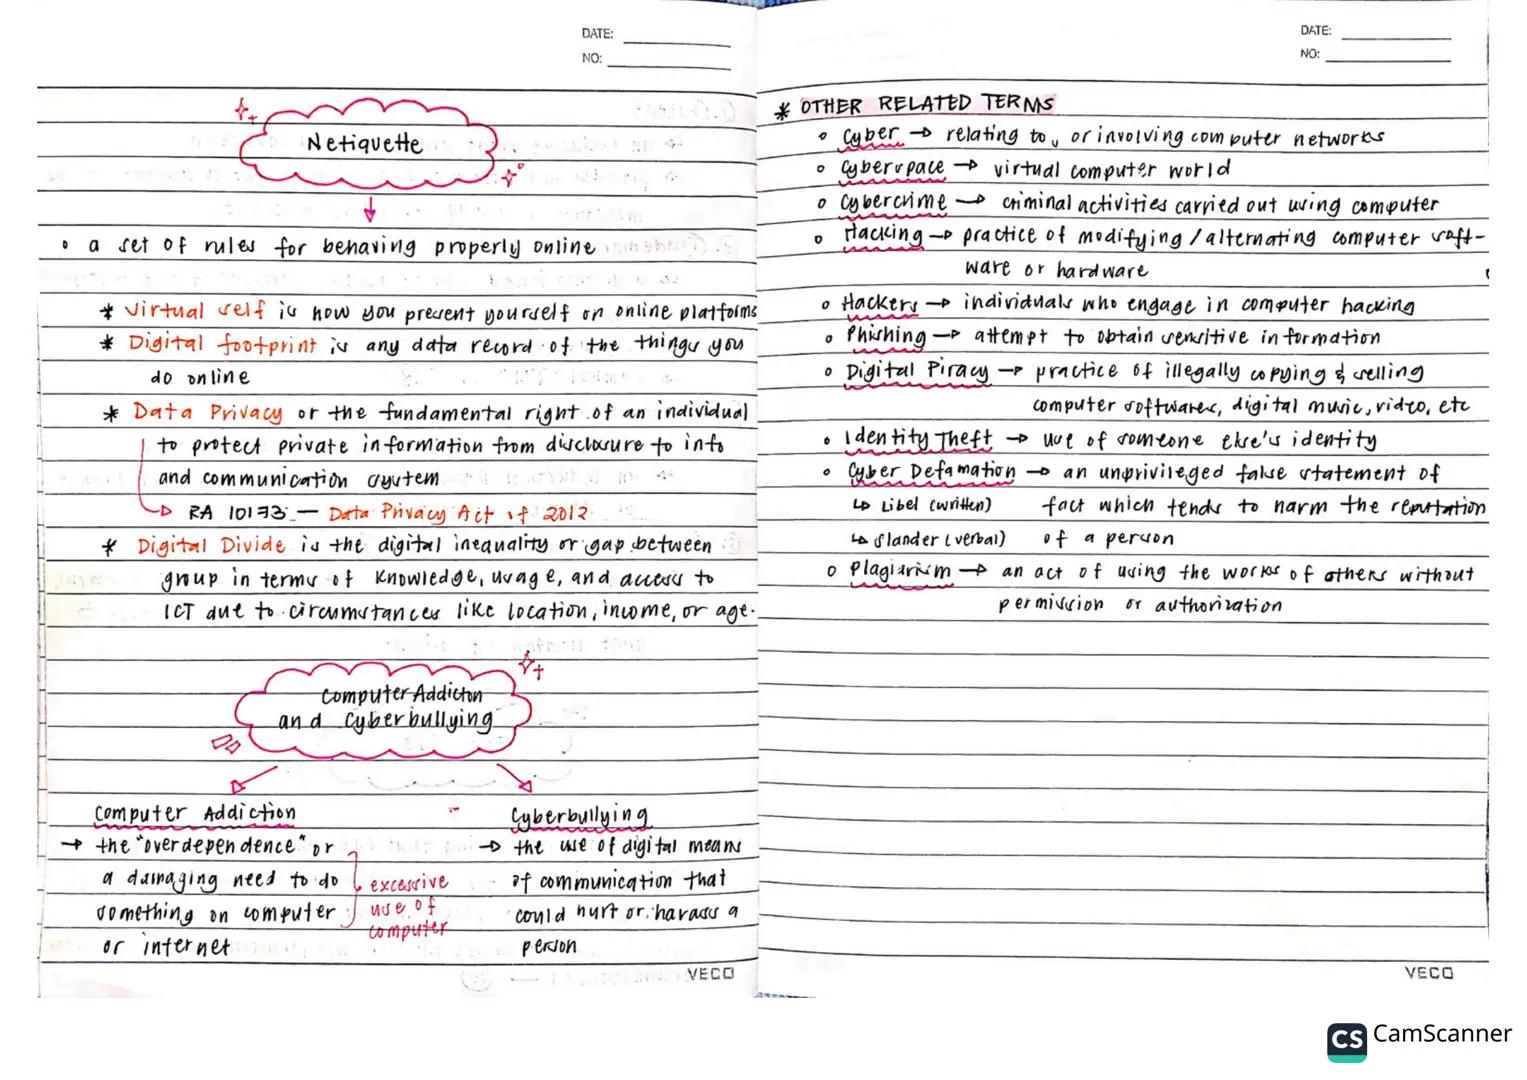 DATE:
NO:
Netiquette
a set of rules for behaving properly online
* Virtual self is how you present yourself on online platforms
* Digital footprint is any data record of the things you
do online
* Data Privacy or the fundamental right of an individual
to protect private information from disclosure to info
and communication system
RA 10173 — Data Privacy Act of 2012
* Digital Divide is the digital inequality or gap between
group in terms of knowledge, usage, and access to
ICT due to circumstances like location, income, or age.
Computer Addicton
and Cyberbullying
Computer Addiction
→ the "overdependence" or
a damaging need to do
something on computer
or internet
excessive
use of
computer
Cyberbullying
→ the use of digital means
of communication that
could hurt or harass a
person
VECO
DATE:
NO:
* OTHER RELATED TERMS
Cyber → relating to, or involving computer networks
Cyberspace → virtual computer world
Cybercrime → criminal activities carried out using computer
Hacking → practice of modifying / alternating computer soft-
ware or hardware
Hackers → individuals who engage in computer hacking
Phishing → attempt to obtain sensitive information
Digital Piracy → practice of illegally copying & selling
computer softwares, digital music, video, etc
Identity Theft → use of someone else's identity
Cyber Defamation → an unprivileged false statement of
↳ Libel (written) fact which tends to harm the reputation
↳ Slander (verbal) of a person
Plagiarism → an act of using the works of others without
permission or authorization
VECO
CS CamScanner